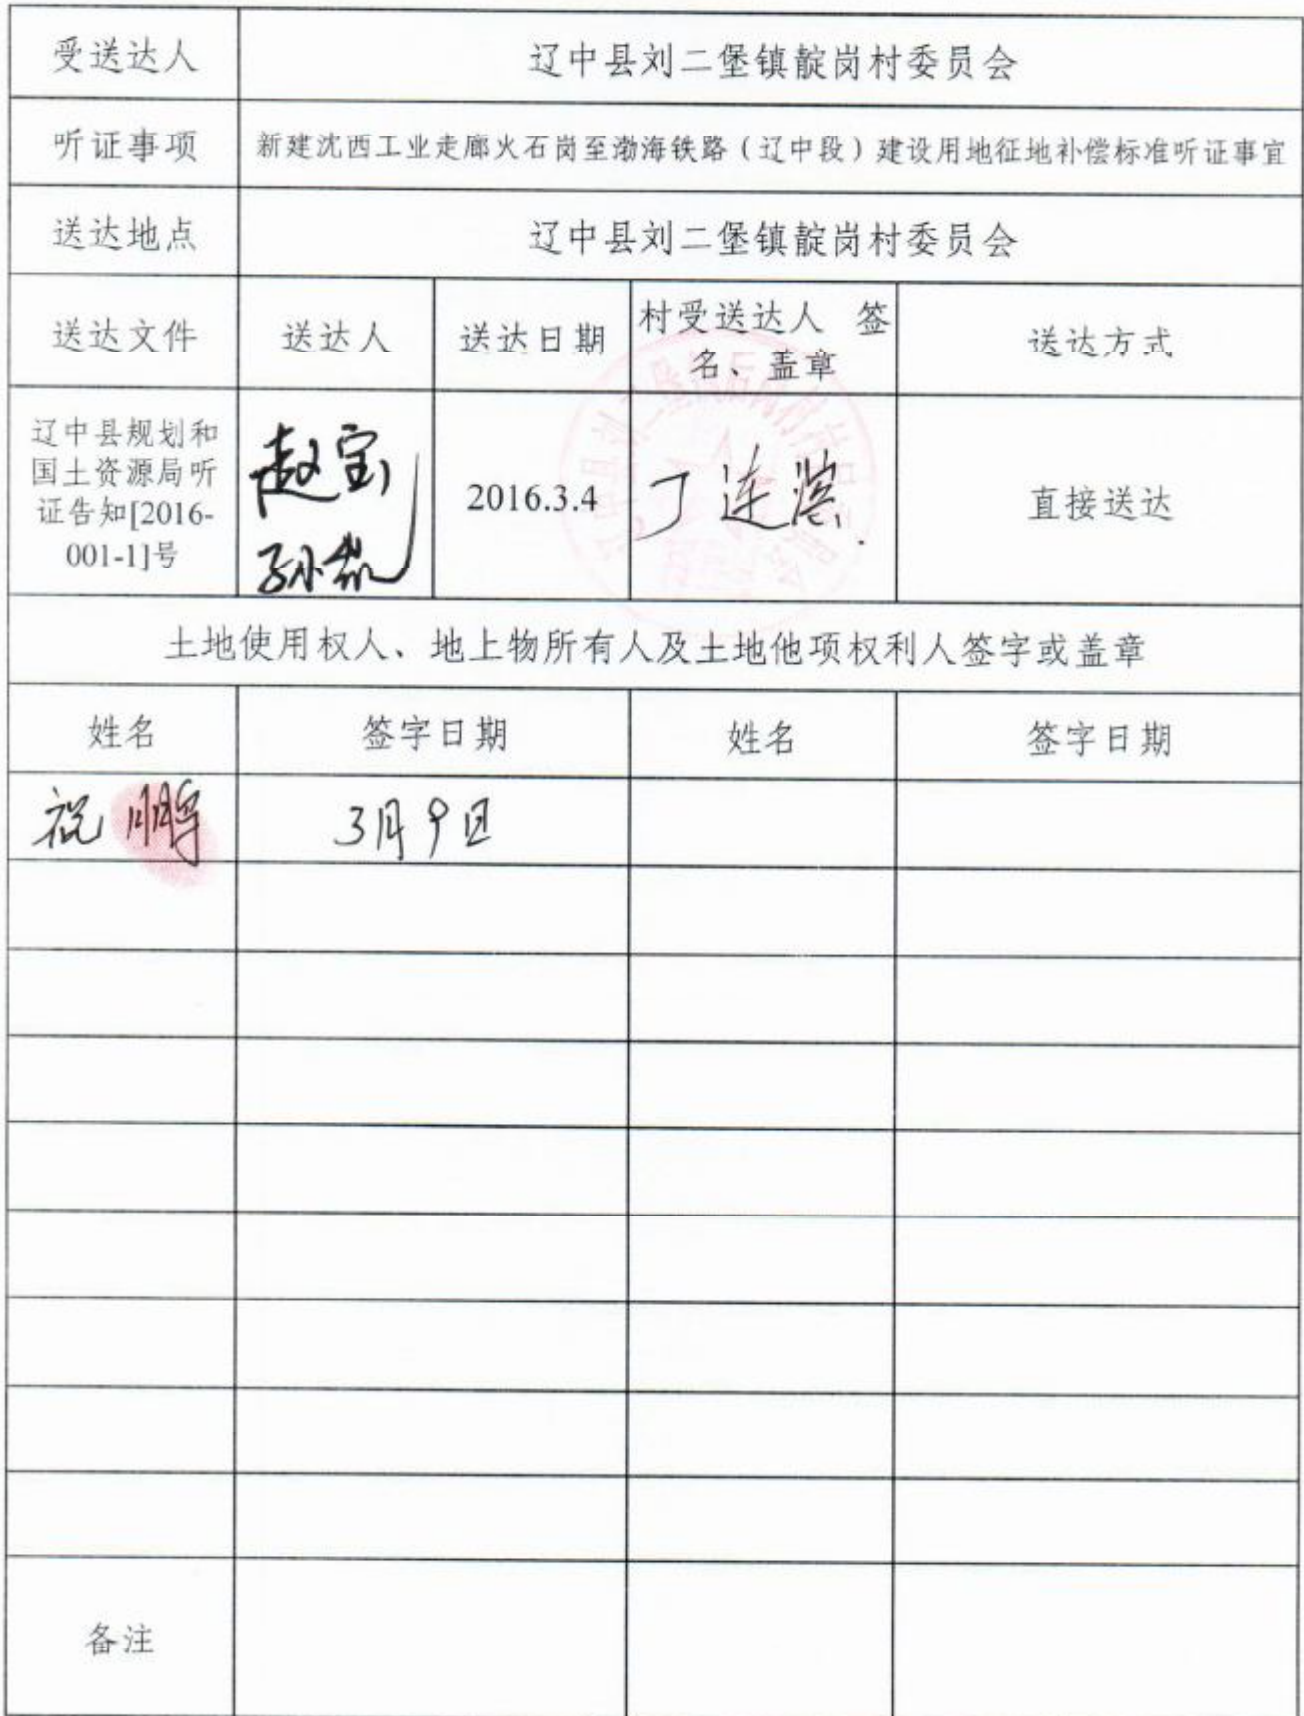 受送达人
辽中县刘二堡镇靛岗村委员会
听证事项
新建沈西工业走廊火石岗至渤海铁路（辽中段）建设用地征地补偿标准听证事宜
送达地点
辽中县刘二堡镇靛岗村委员会
送达文件
送达人
送达日期
村受送达人 签
名、盖章
送达方式
辽中县规划和
国土资源局听
证告知[2016-
001-1]号
赵宝
2016.3.4
丁连
直接送达
土地使用权人、地上物所有人及土地他项权利人签字或盖章
姓名
签字日期
姓名
签字日期
祝鹏
3月9日
备注